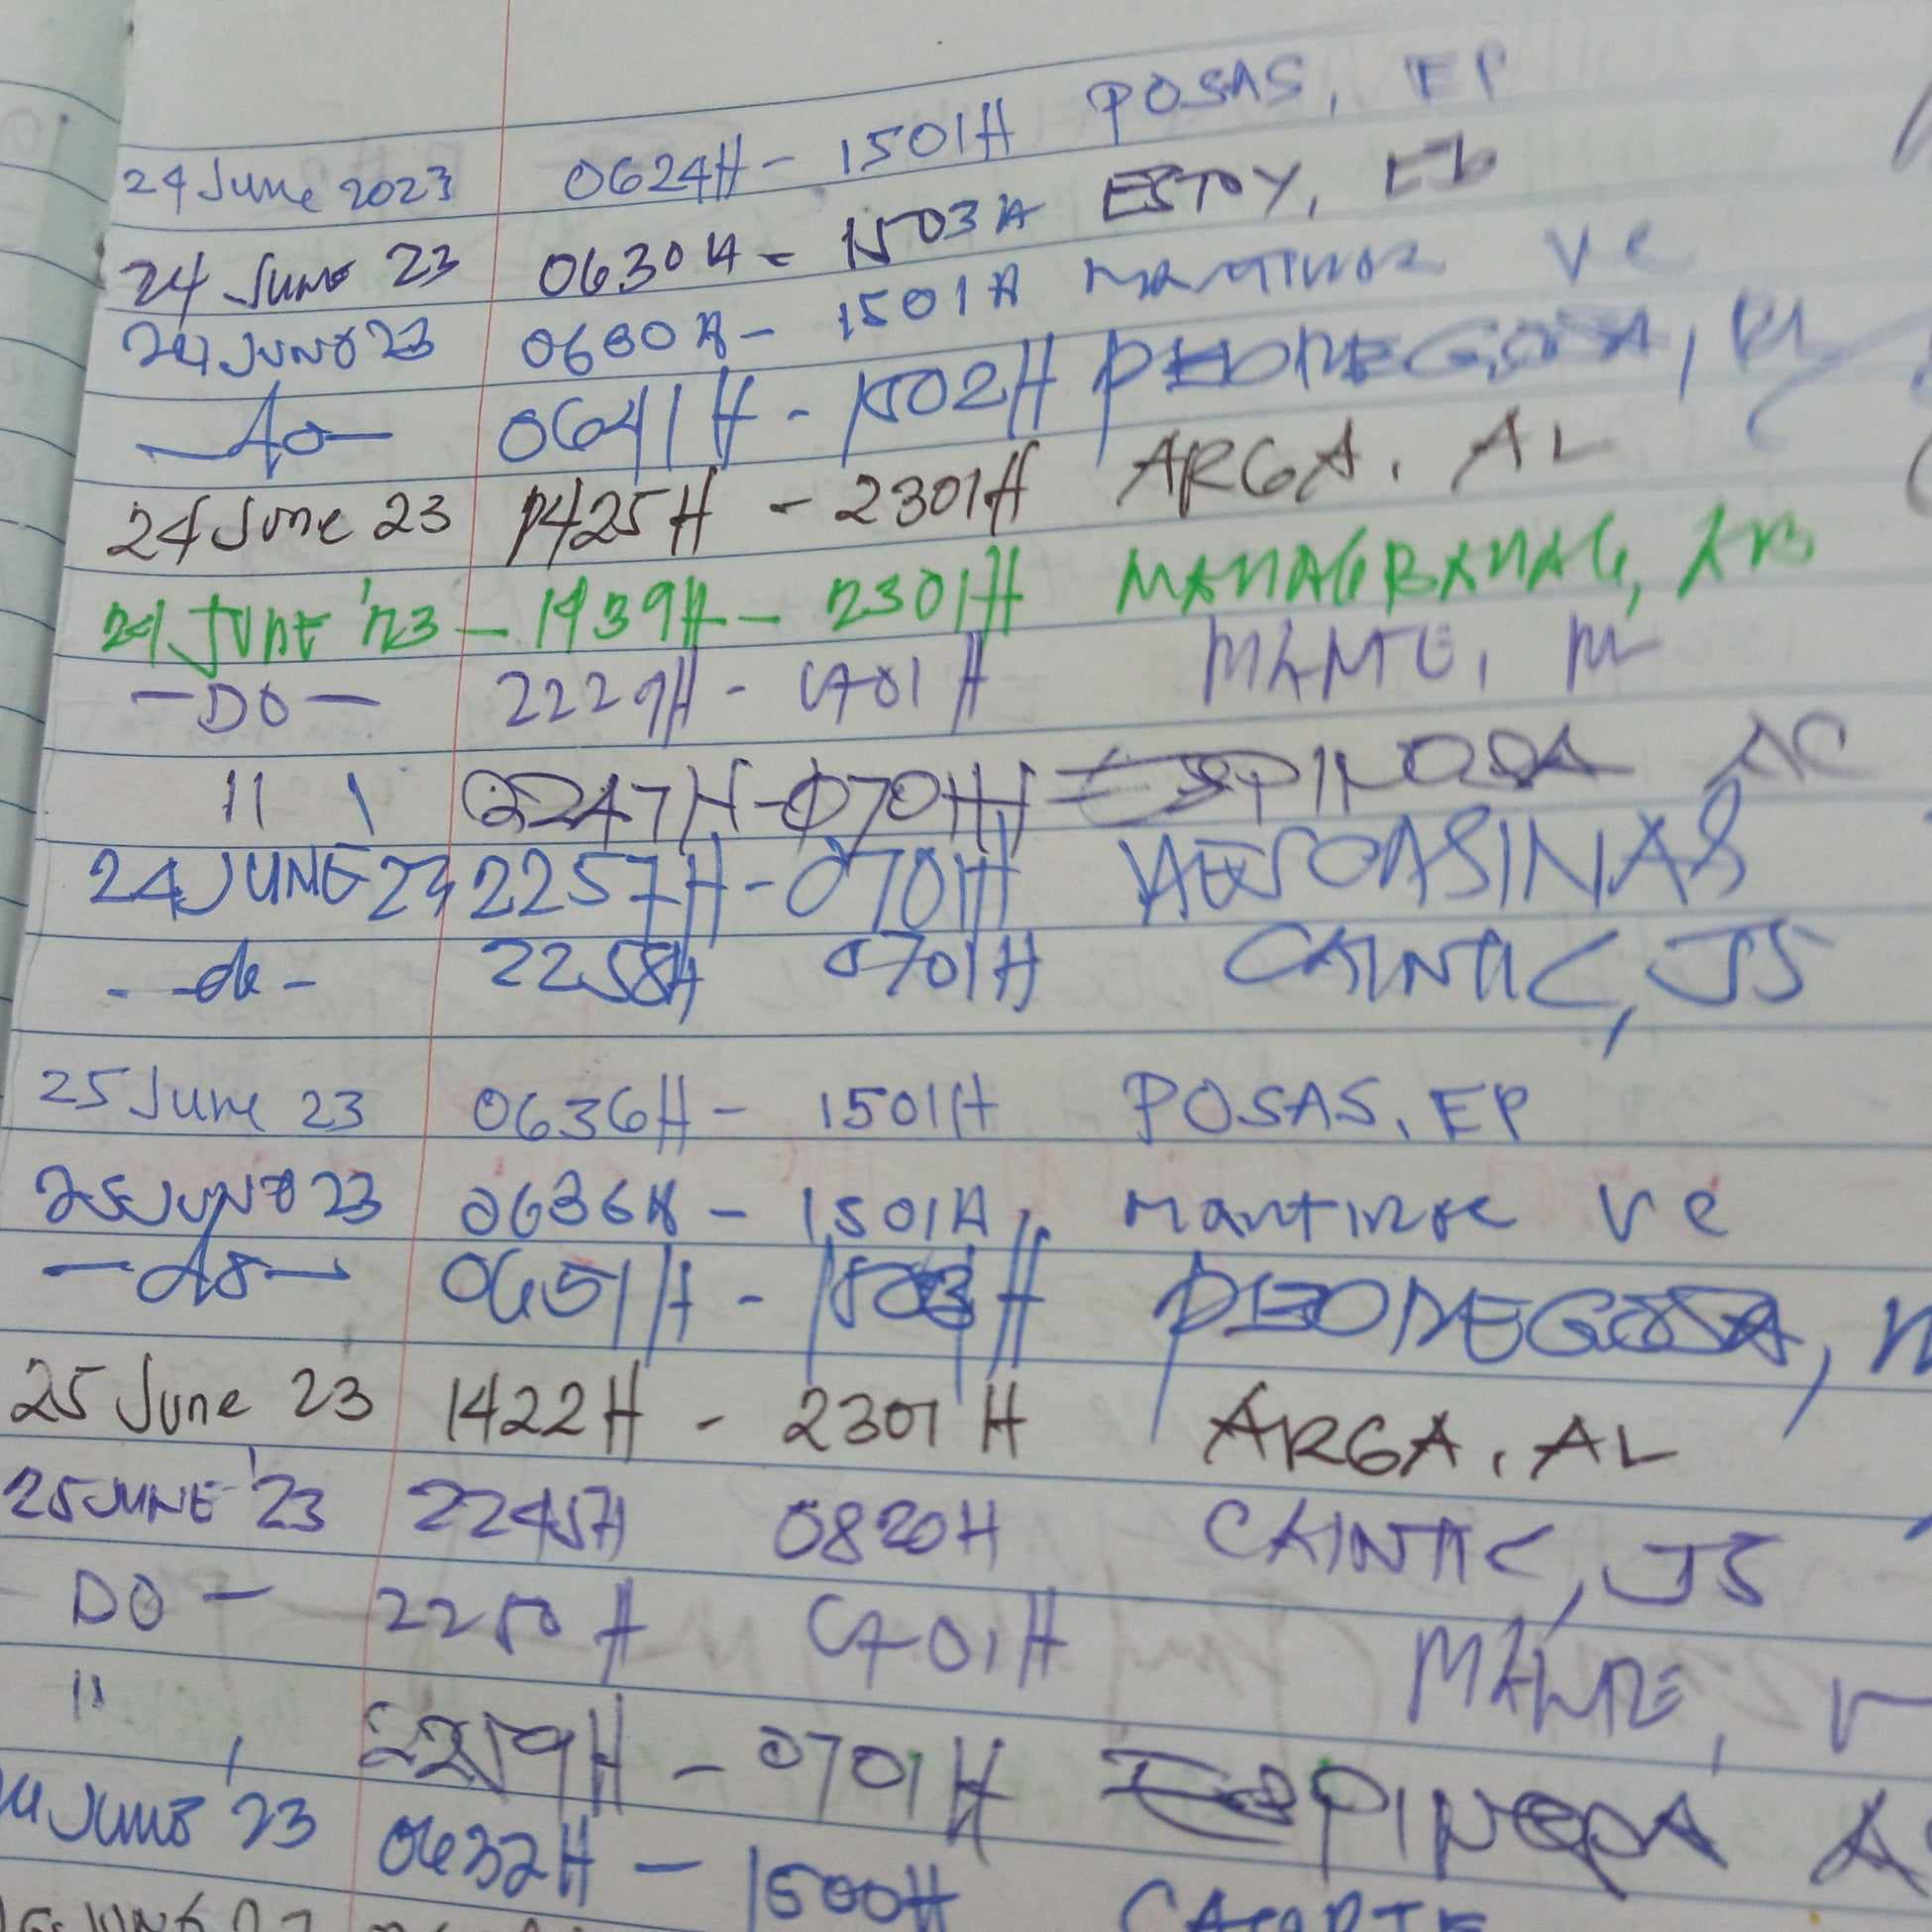 24 June 2023 0624H - 1501H POSAS, EP
24 JUNE 23 0630H - 1503H ESTOY, EB
24 JUNE 23 0630H - 1501H MARTINEZ VC
-do- 0641H - 1502H PEDREGOSA,
24 June 23 1425H - 2301H ARGA. AL
24 JUNE '23 - 1439H - 2301H MANAGBANAG,
-DO- 2229H - 0701H
" 2247H - 0701H ESPINOSA AC
24 JUNE 23 2257H - 0701H
- -do- 2258H 0701H CAINTIC, JS
25 June 23 0636H - 1501H POSAS, EP
25 JUNE 23 0636H - 1501H Martinez VC
-do- 0651H - 1503H PEDREGOSA,
25 June 23 1422H - 2301H ARGA. AL
25 JUNE '23 2245H 0820H CAINTIC, JS
DO - 2250H 0701H
" 2259H - 0701H ESPINOSA
JUNE '23 0632H - 1500H